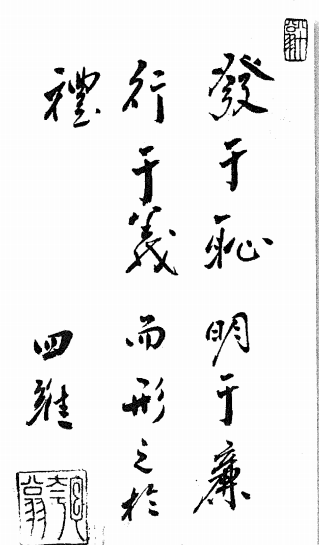 發于恥 明于廉
行于義 而形之於
禮 四維